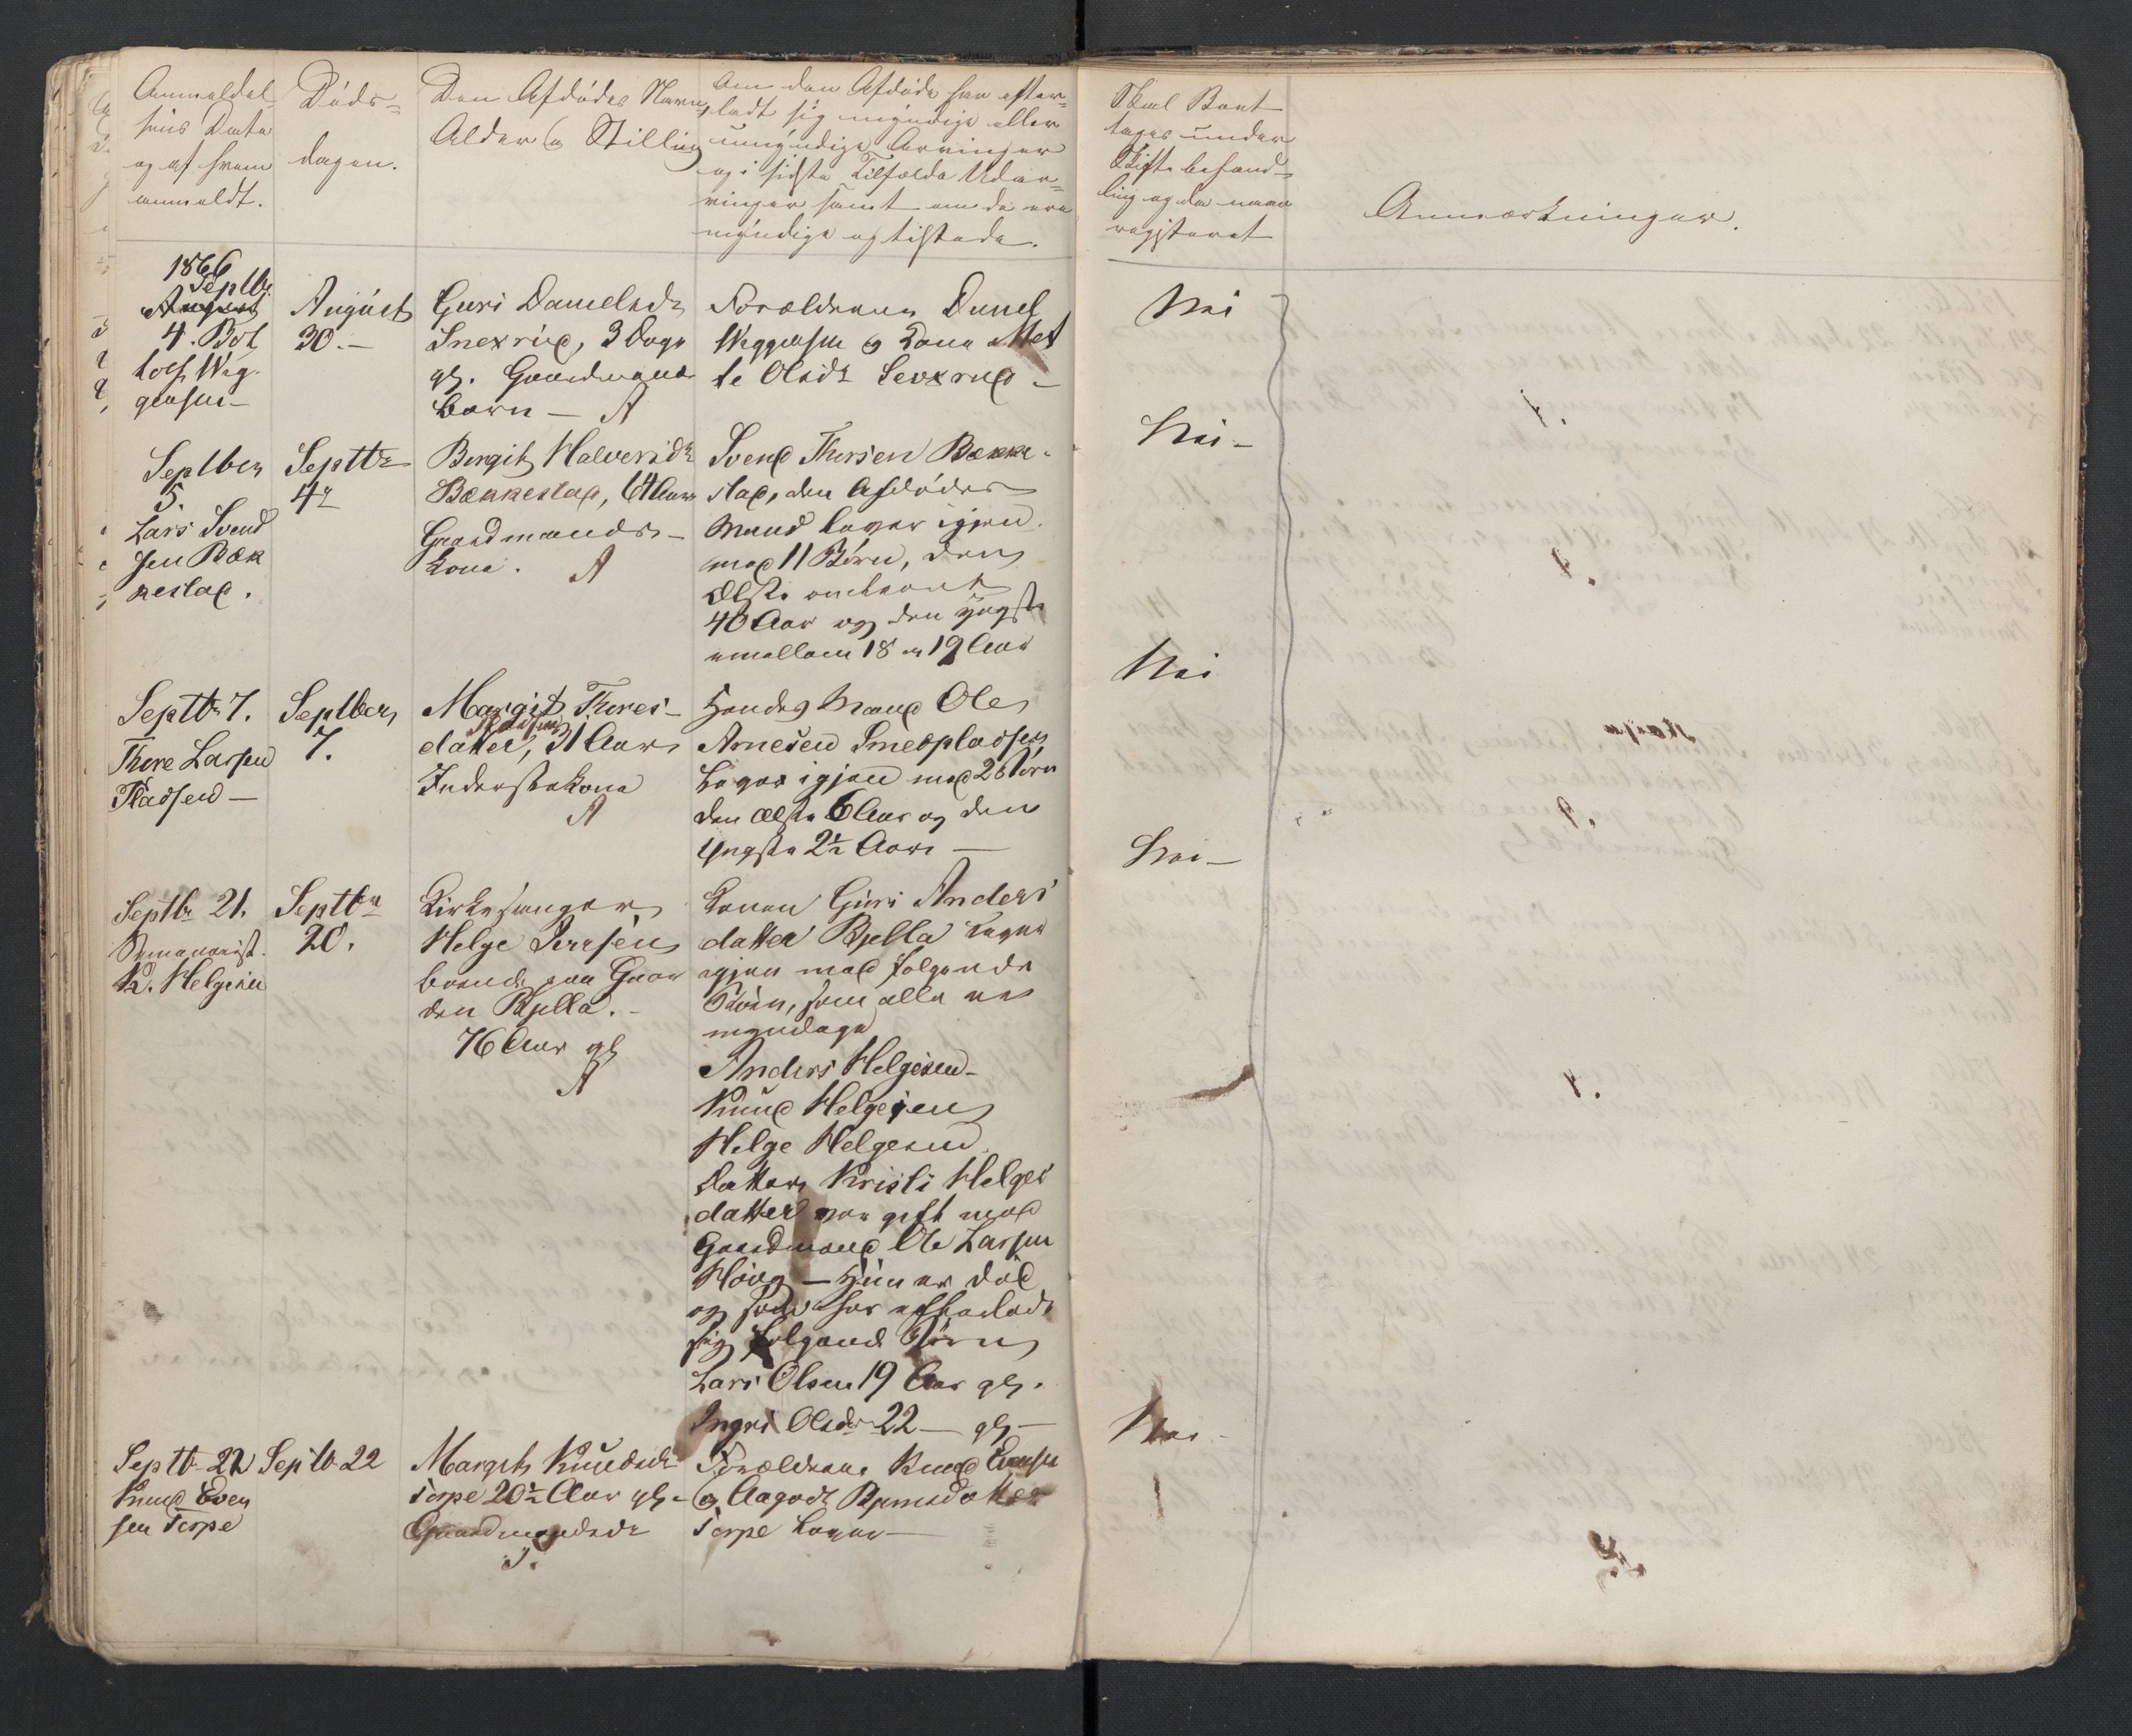 Anmeldel-
sens Dato
og af hvem
anmeldt.
Døds-
dagen.
Den Afdødes Navn,
Alder og Stilling
Om den Afdøde har efter-
ladt sig myndige eller
umyndige Arvinger
og i sidste Tilfælde Udar-
vinger samt om de ere
myndige og tilstede.
Skal Boet
tages under
Skiftebehand-
ling og da naar
registeret
Anmærkninger.
1866
Septbr
August
4. Bot
tolf Weg-
gersen
August
30.
Guri Danielsdr
3 Dage
gl. Gaardmands
barn – A
Forældrene
og Kone Met
te Olsdr
Nei
Septber
5.
Lars Svend
sen Bæk
kestad.
Septbr
4de
Bergit Halversdr
Bækkestad, 64 Aar
Gaardmands-
kone. A
Svend Thorsen Bække-
stad, den Afdødes
Mand lever igjen
med 11 Børn, den
Ælste omtrent
40 Aar og den yngste
emellem 18 og 19 Aar
Nei –
Septbr 7.
Thore Larsen
Pladsen –
Septber
7.
Margit Thores-
datter, 31 Aar
Inderstekone
A
Hendes Mand Ole
Arnesen Smedpladsen
Lever igjen med 2 Børn
den Ælste 6 Aar og den
Yngste 2½ Aar –
Nei
Septbr 21.
Seminarist
K. Helgesen
Septbr
20.
Kirkesanger
Helge Iversen
boende paa Gaar
den Bjella. –
76 Aar gl
A
Konen Guri Anders
datter Bjella lever
igjen med følgende
Børn, som alle ere
myndige
Anders Helgesen –
Knud Helgesen
Helge Helgesen
Datter Kristi Helges
datter var gift med
Gaardmand Ole Larsen
Høvg – Hun er død
og som har efterladt
sig følgende Børn
Lars Olsen 19 Aar gl.
Ingri Olsdr 22 – gl –
Nei –
Septbr 22
Knud Even
sen Torpe
Septbr 22
Margit Knudsdr
Torpe 20½ Aar gl. –
Gaardmandsdr
Forældrene Knud Evensen
og Aagodt Bjørnsdatter
Torpe Lever –
Nei –